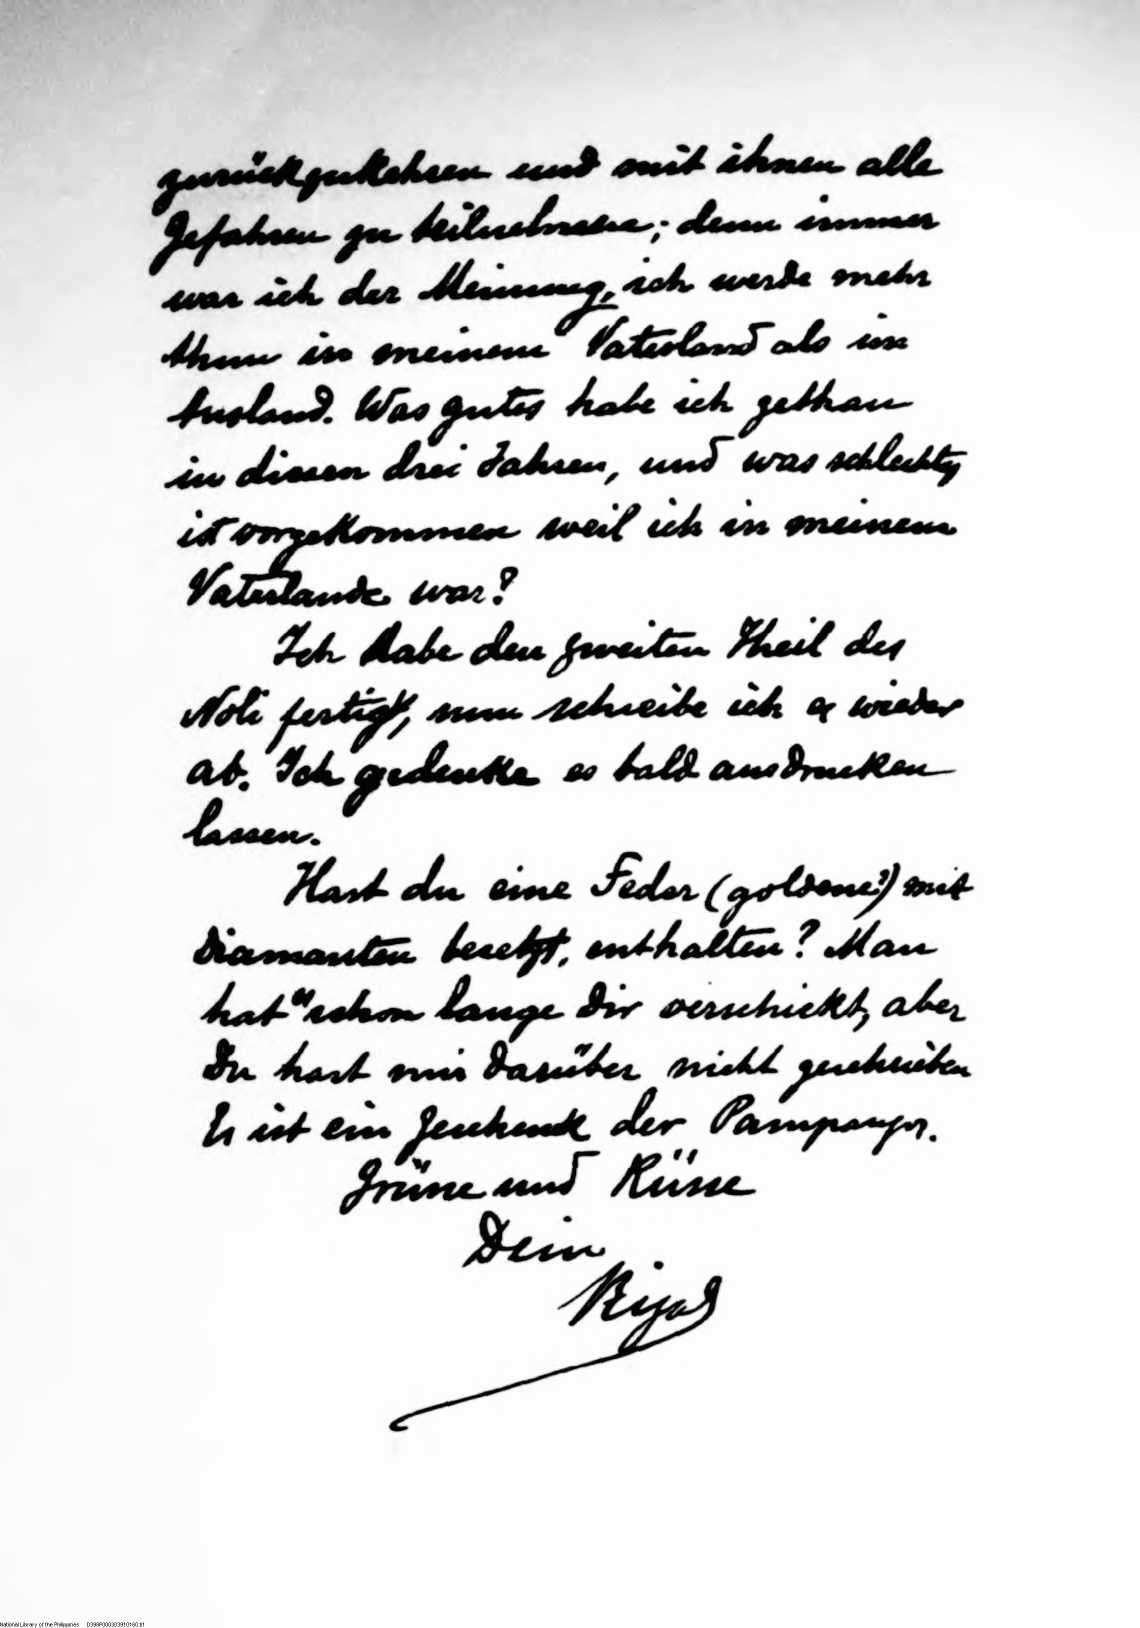 zurückzukehren und mit ihnen alle
Gefahren zu teilnehmen; denn immer
war ich der Meinung, ich werde mehr
thun in meinem Vaterland als im
Ausland. Was gutes habe ich gethan
in diesen drei Jahren, und was schlechtes
ist vorgekommen weil ich in meinem
Vaterlande war?
Ich habe den zweiten Theil des
Noli fertig, nun schreibe ich es wieder
ab. Ich gedenke es bald ausdrucken
lassen.
Hast du eine Feder (goldene?) mit
Diamanten besetzt, enthalten? Man
hat es schon lange Dir verschickt, aber
Du hast mir darüber nicht geschrieben
Es ist ein Geschenk der Pampangos.
Grüsse und Küsse
Dein
Rizal
National Library of the Philippines